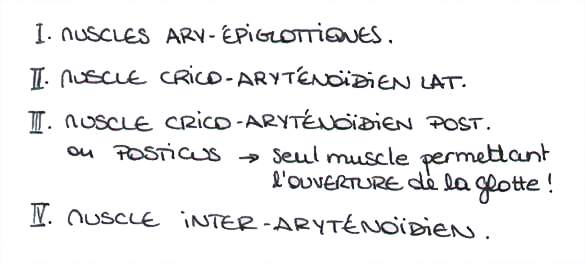 I. MUSCLES ARY-ÉPIGLOTTIQUES.
II. MUSCLE CRICO-ARYTÉNOÏDIEN LAT.
III. MUSCLE CRICO-ARYTÉNOÏDIEN POST.
ou POSTICUS → seul muscle permettant
l'OUVERTURE de la glotte !
IV. MUSCLE INTER-ARYTÉNOÏDIEN.